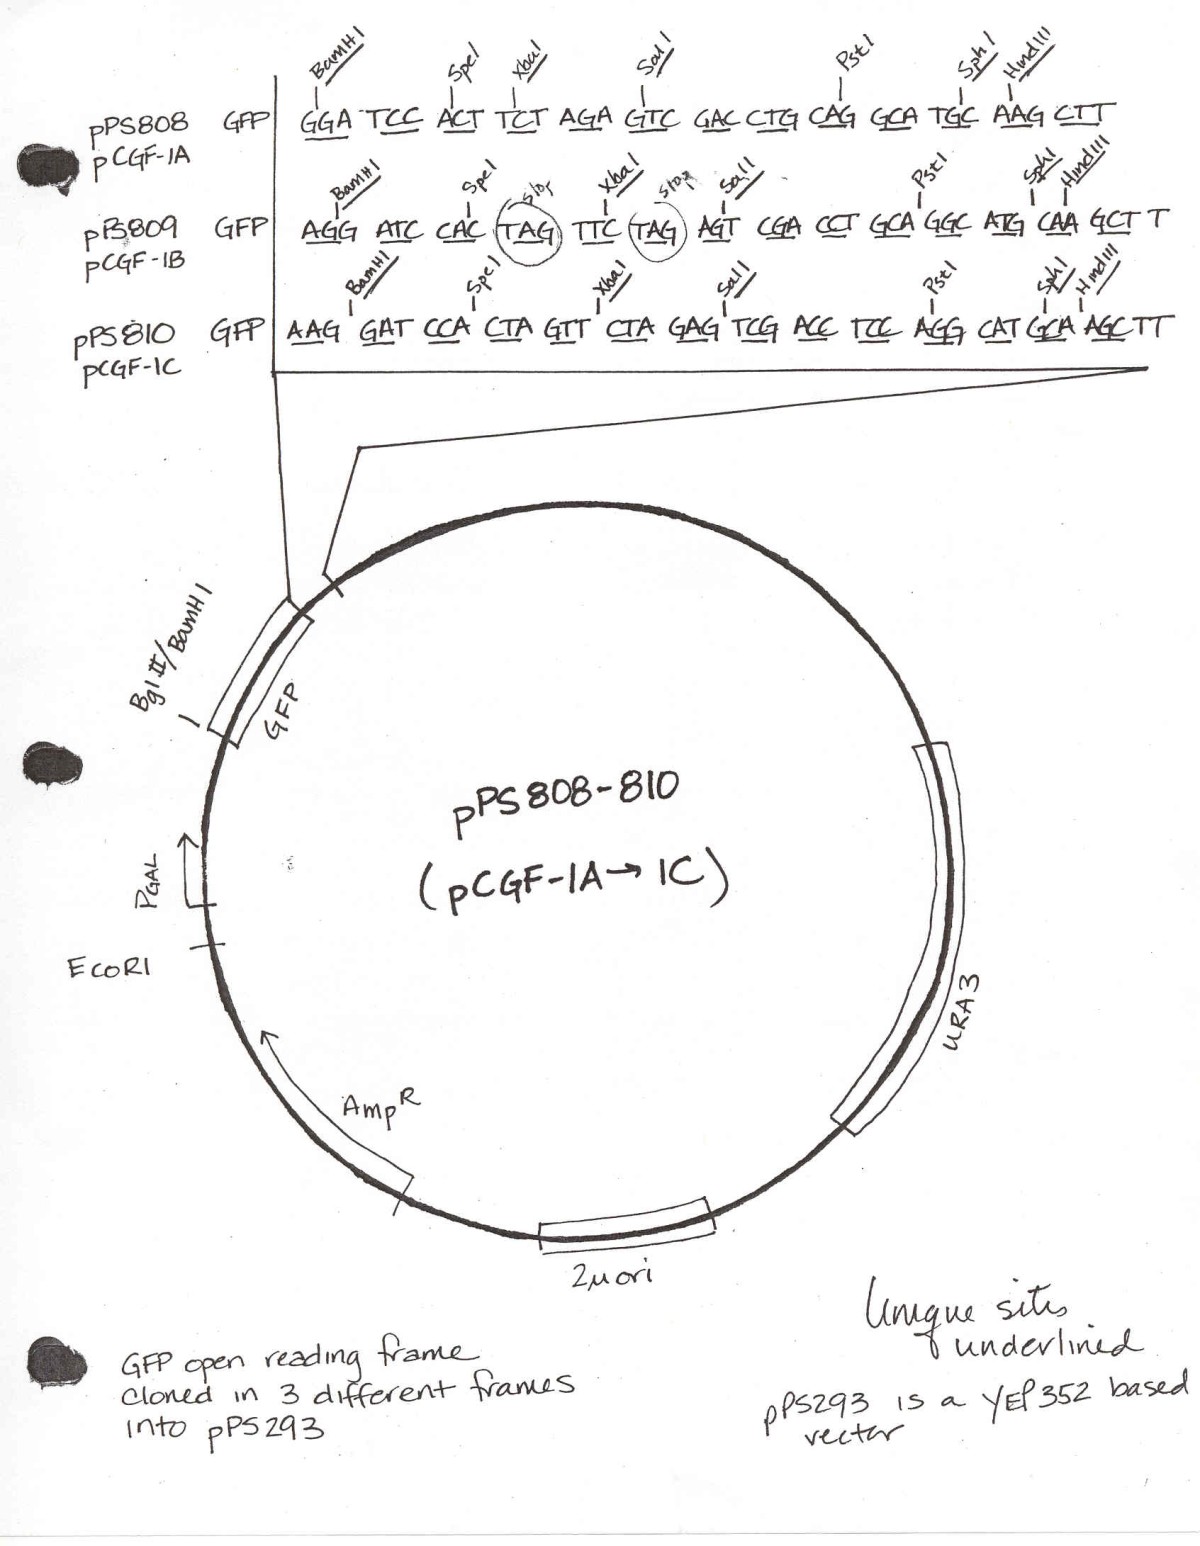 BamHI SpeI XbaI SalI PstI SphI HindIII
pPS808 GFP GGA TCC ACT TCT AGA GTC GAC CTG CAG GCA TGC AAG CTT
pCGF-1A
BamHI SpeI stop XbaI stop SalI PstI SphI HindIII
pPS809 GFP AGG ATC CAC TAG TTC TAG AGT CGA CCT GCA GGC ATG CAA GCT T
pCGF-1B
BamHI SpeI XbaI SalI PstI SphI HindIII
pPS810 GFP AAG GAT CCA CTA GTT CTA GAG TCG ACC TCC AGG CAT GCA AGC TT
pCGF-1C
BglII/BamHI
GFP
pPS808-810
(pCGF-1A→1C)
PGAL
EcoRI
URA3
AmpR
2μ ori
Unique sites
underlined
GFP open reading frame
cloned in 3 different frames
into pPS293
pPS293 is a YEP352 based
vector